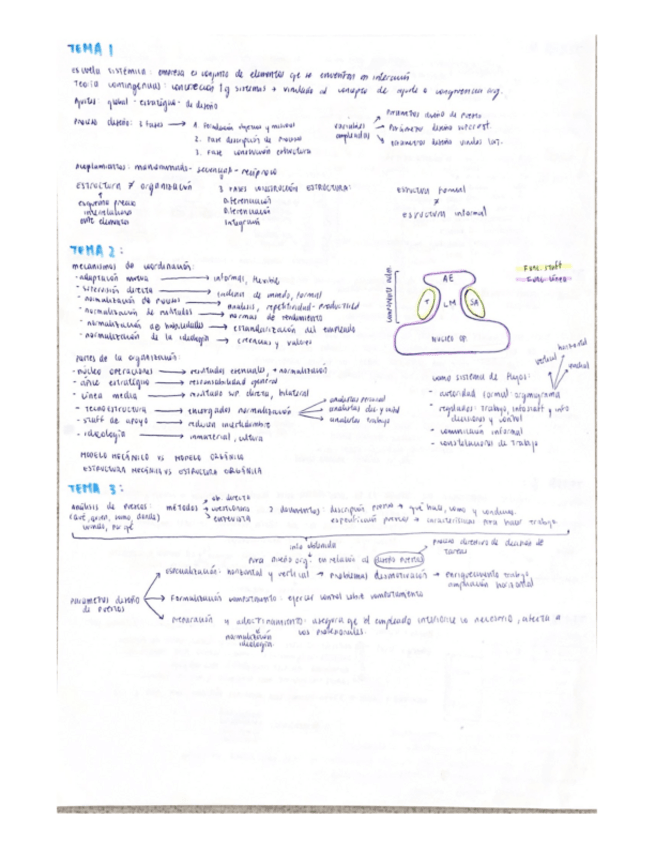 TEMA 1
escuela sistémica: empresa es conjunto de elementos que se encuentran en interacción
Teoría contingencias: sistemas + vinculado al concepto de ajuste o congruencia org.
Ajustes: global - estratégico - de diseño
Proceso diseño: 3 fases → 1. Formulación objetivos y misiones
2. Fase descripción de procesos
3. Fase construcción estructura
variables empleadas
parámetros diseño de puestos
parámetros diseño
parámetros diseño
Acoplamientos: mancomunado - secuencial - recíproco
estructura ≠ organización
esquema
entre elementos
3 FASES CONSTRUCCIÓN ESTRUCTURA:
Diferenciación
Integración
estructura formal
≠
estructura informal
TEMA 2:
mecanismos de coordinación:
- adaptación mutua → informal, flexible
- supervisión directa → cadena de mando, formal
- normalización de procesos → análisis, repetitividad - productividad
- normalización de resultados → normas de rendimiento
- normalización de habilidades → estandarización del empleado
- normalización de la ideología → creencias y valores
AE
T LM SA
NÚCLEO OP.
Func. staff
Func. línea
partes de la organización:
- núcleo operaciones → resultados esenciales, + normalización
- ápice estratégico → responsabilidad general
- línea media → resultado directa, bilateral
- tecnoestructura → encargados normalización
analistas personal
analistas
analistas trabajo
- staff de apoyo → reducen incertidumbre
- ideología → inmaterial, cultura
como sistema de flujos:
vertical
horizontal
- autoridad formal organigrama
- regulados: trabajo, info staff y info
decisiones y control
- comunicación informal
- constelaciones de trabajo
MODELO MECÁNICO VS MODELO ORGÁNICO
ESTRUCTURA MECÁNICA VS ESTRUCTURA ORGÁNICA
TEMA 3:
análisis de puestos: métodos
ob. directa
cuestionarios
entrevista
(qué, quién, cómo, dónde)
cuándo, por qué
2 documentos: descripción puestos → qué hace, cómo y condiciones.
especificación puestos → características para hacer trabajo
info obtenida
para diseño org en relación al diseño puestos
proceso de decisión de
tareas
parámetros diseño
de puestos
especialización: horizontal y vertical → problemas desmotivación → enriquecimiento trabajo
ampliación horizontal
Formalización comportamiento: ejercer control sobre comportamiento
preparación y adoctrinamiento: asegura que el empleado interiorice lo necesario, afecta a
los profesionales.
normalización
ideología